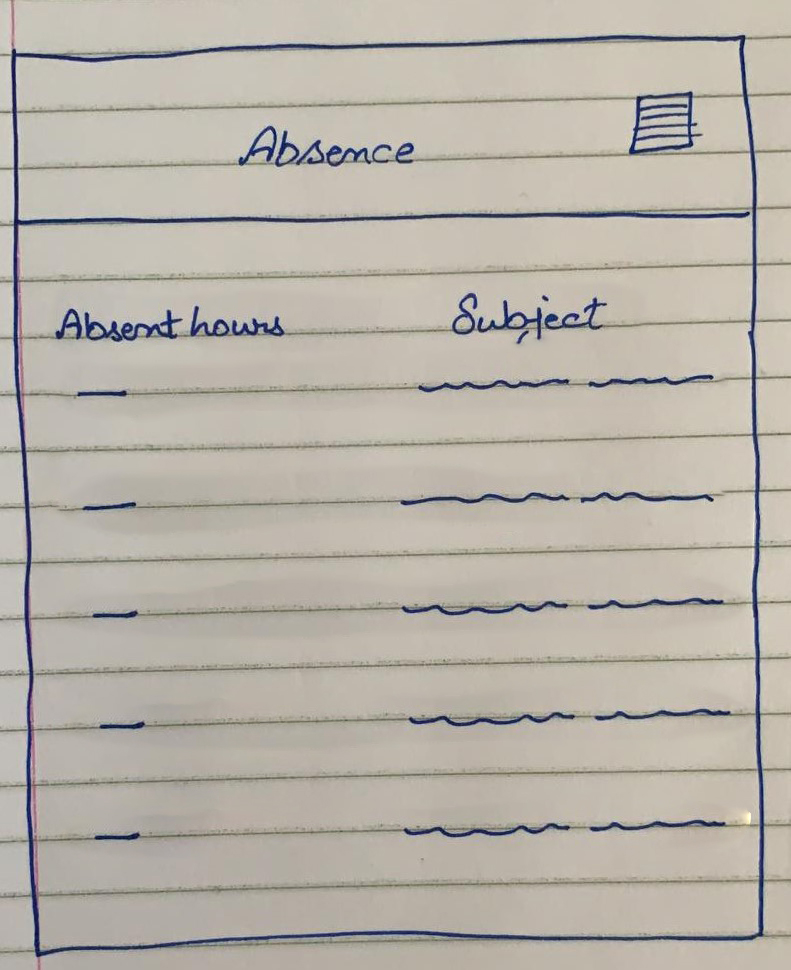 Absence
Absent hours Subject